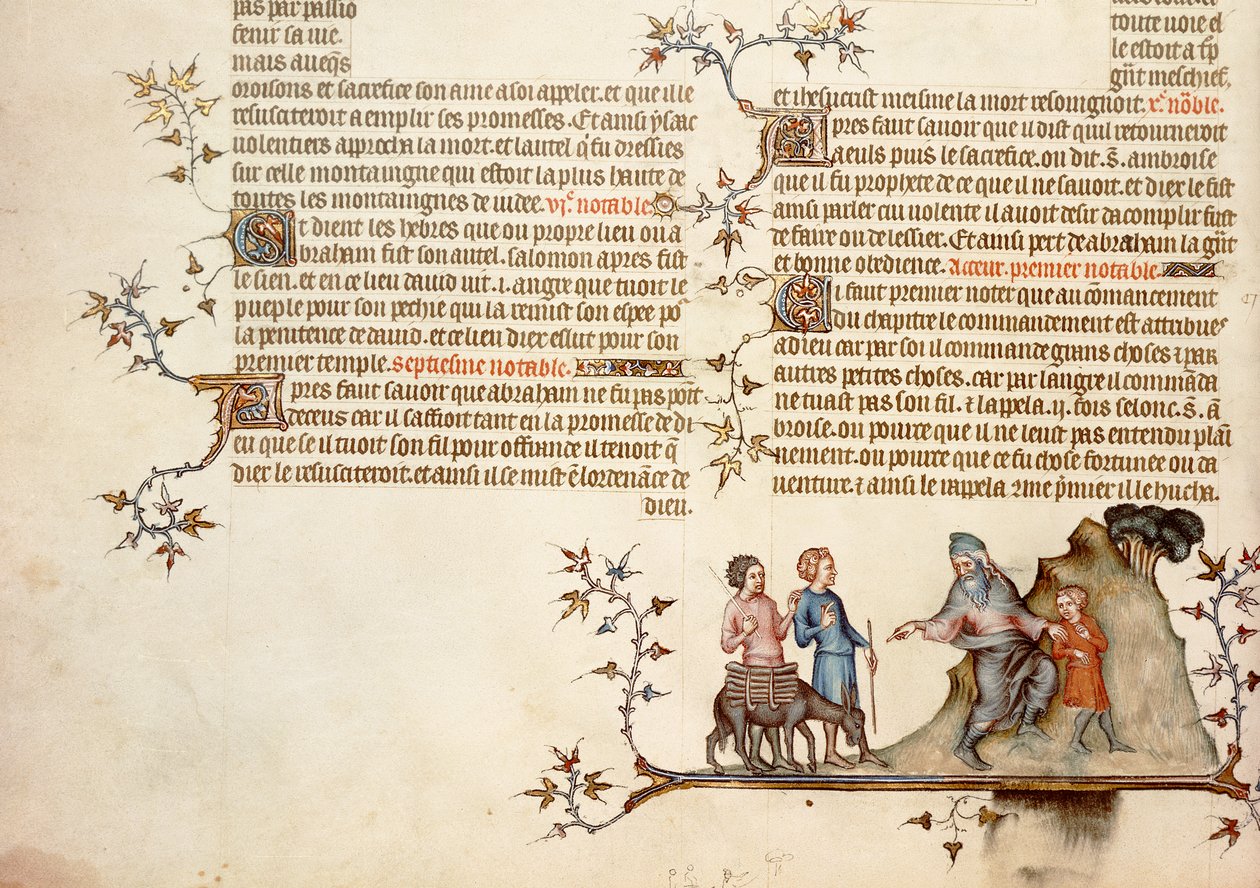 pas par passio
fenir sa vie.
mais aueq̃s
oroisons et sacrefice son ame a soi appeler. et que il le
resusciteroit a emplir ses promesses. Et ainsi ysaac
uolentiers aprocha la mort. et lautel q̃ fu dressies
sur celle montaingne qui estoit la plus haute de
toutes les montaingnes de iudee. vi.ᵉ notable.
Et dient les hebres que ou propre lieu ou a
braham fist son autel. salomon apres fist
le sien. et en ce lieu dauid uit .i. angre que tuoit le
pueple pour son pechie qui la remist son espee po᷑
la penitence de dauid. et ce lieu diex eslut pour son
premier temple. Septiesme notable.
Apres faut sauoir que abraham ne fu pas poīt
deceus car il saffioit tant en la promesse de di
eu que se il tuoit son fil pour offrande il tenoit q̃
diex le resusciteroit. et ainsi il se mist ē lordenāce de
dieu.
toute uoie el
le estoit a fp̄
gn̄t meschief,
et ihesucrist meisme la mort resoingnoit. x.ᵉ nōble.
Apres faut sauoir que il dist quil retourneroit
a euls puis le sacrefice. ou dit .S. ambroise
que il fu prophete de ce que il ne sauoit. et diex le fist
ainsi parler cui uolente il auoit desir dacomplir fust
de faire ou de lessier. Et ainsi pert de abraham la gn̄t
et bonne obedience. Acteur. premier notable.
Ci faut premier noter que au cōmancement
du chapitre le commandement est attribue
a dieu car par soi il commande grans choses ⁊ par
autres petites choses. car par langre il commāda
ne tuast pas son fil. ⁊ lappela .ij. fois selonc .S. ā
broise. ou pource que il ne leust pas entendu plai
nement. ou pource que ce fu chose fortunee ou da
uenture. ⁊ ainsi le rappela 9me p̄mier il le hucha.